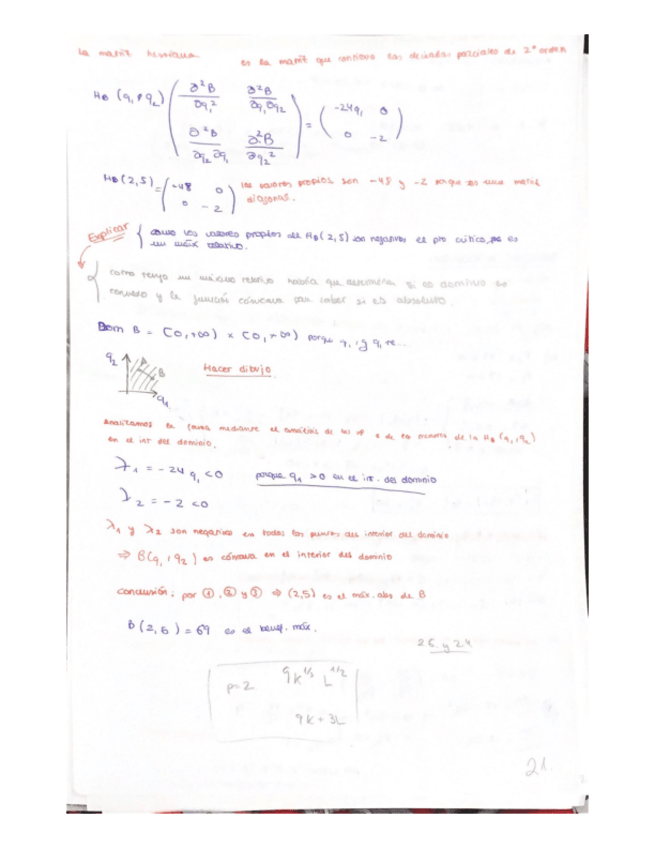 La matriz hessiana es la matriz que contiene las derivadas parciales de 2º orden
HB (q₁, q₂) ( ∂²B/∂q₁² ∂²B/∂q₁∂q₂
∂²B/∂q₂∂q₁ ∂²B/∂q₂² ) = ( -24q₁ 0
0 -2 )
HB(2,5) = ( -48 0
0 -2 ) los valores propios son -48 y -2 porque es una matriz
diagonal.
Explicar { como los valores propios del HB(2,5) son negativos el pto crítico es
un máx relativo.
como tengo un máximo relativo habría que determinar si es dominio es
convexo y la función cóncava para saber si es absoluto.
Dom B = (0,+∞) x (0,+∞) porque q₁ y q₂
q₂ A B q₁
Hacer dibujo
Analizamos la mediante el análisis de la HB (q₁, q₂)
en el int del dominio.
λ₁ = -24 q₁ < 0 porque q₁ > 0 en el int. del dominio
λ₂ = -2 < 0
λ₁ y λ₂ son negativos en todos los puntos del interior del dominio
⇒ B(q₁, q₂) es cóncava en el interior del dominio
conclusión: por ①, ② y ③ ⇒ (2,5) es el máx. abs de B
B(2,5) = 69 es el benef. máx.
25 y 24
p=2 9K^1/3 L^1/2
9K + 3L
21